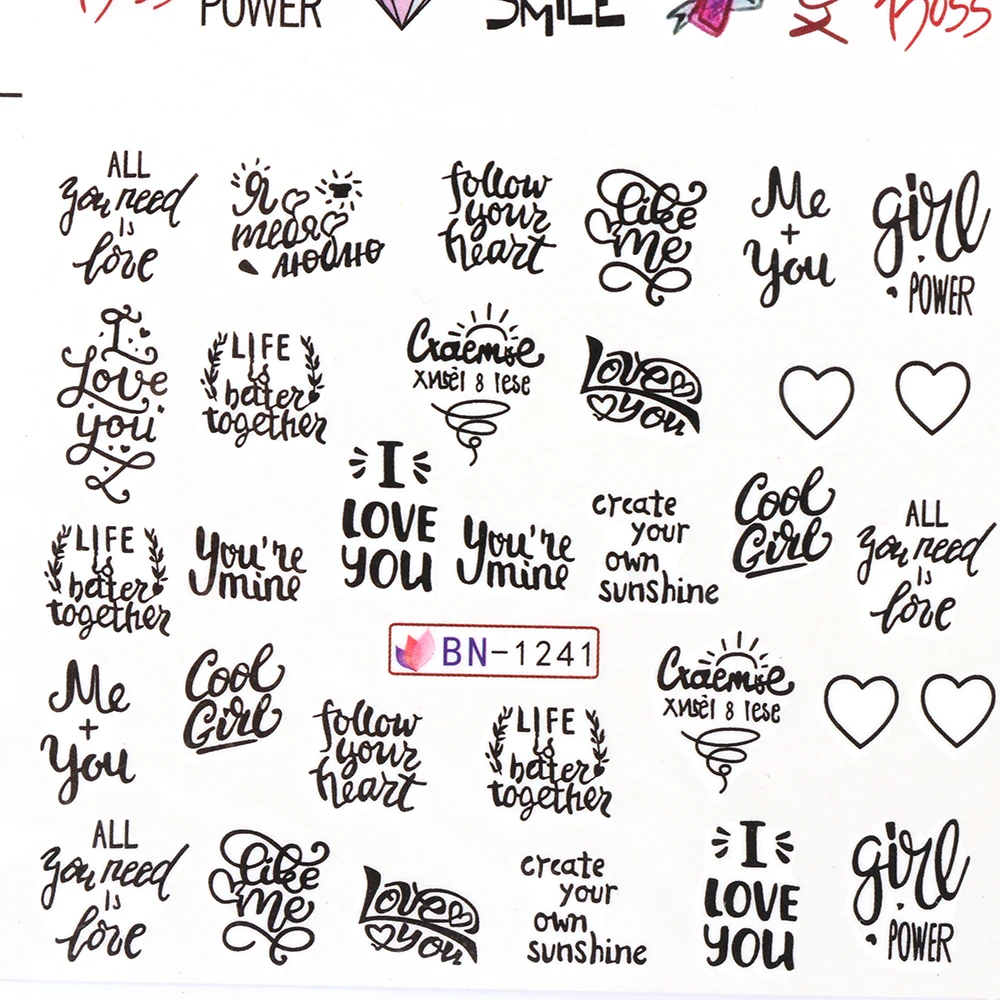 Boss
POWER
SMILE
Boss
ALL
you need
is
love
Я
тебя
люблю
follow
your
heart
like
me
Me
+
You
girl
POWER
I
Love
you
LIFE
is
better
together
Счастье
Love
you
I
LOVE
YOU
LIFE
is
better
together
You're
mine
You're
mine
create
your
own
sunshine
Cool
Girl
ALL
you need
is
love
BN-1241
Me
+
You
Cool
Girl
follow
your
heart
LIFE
is
better
together
Счастье
ALL
you need
is
love
like
me
Love
you
create
your
own
sunshine
I
LOVE
YOU
girl
POWER